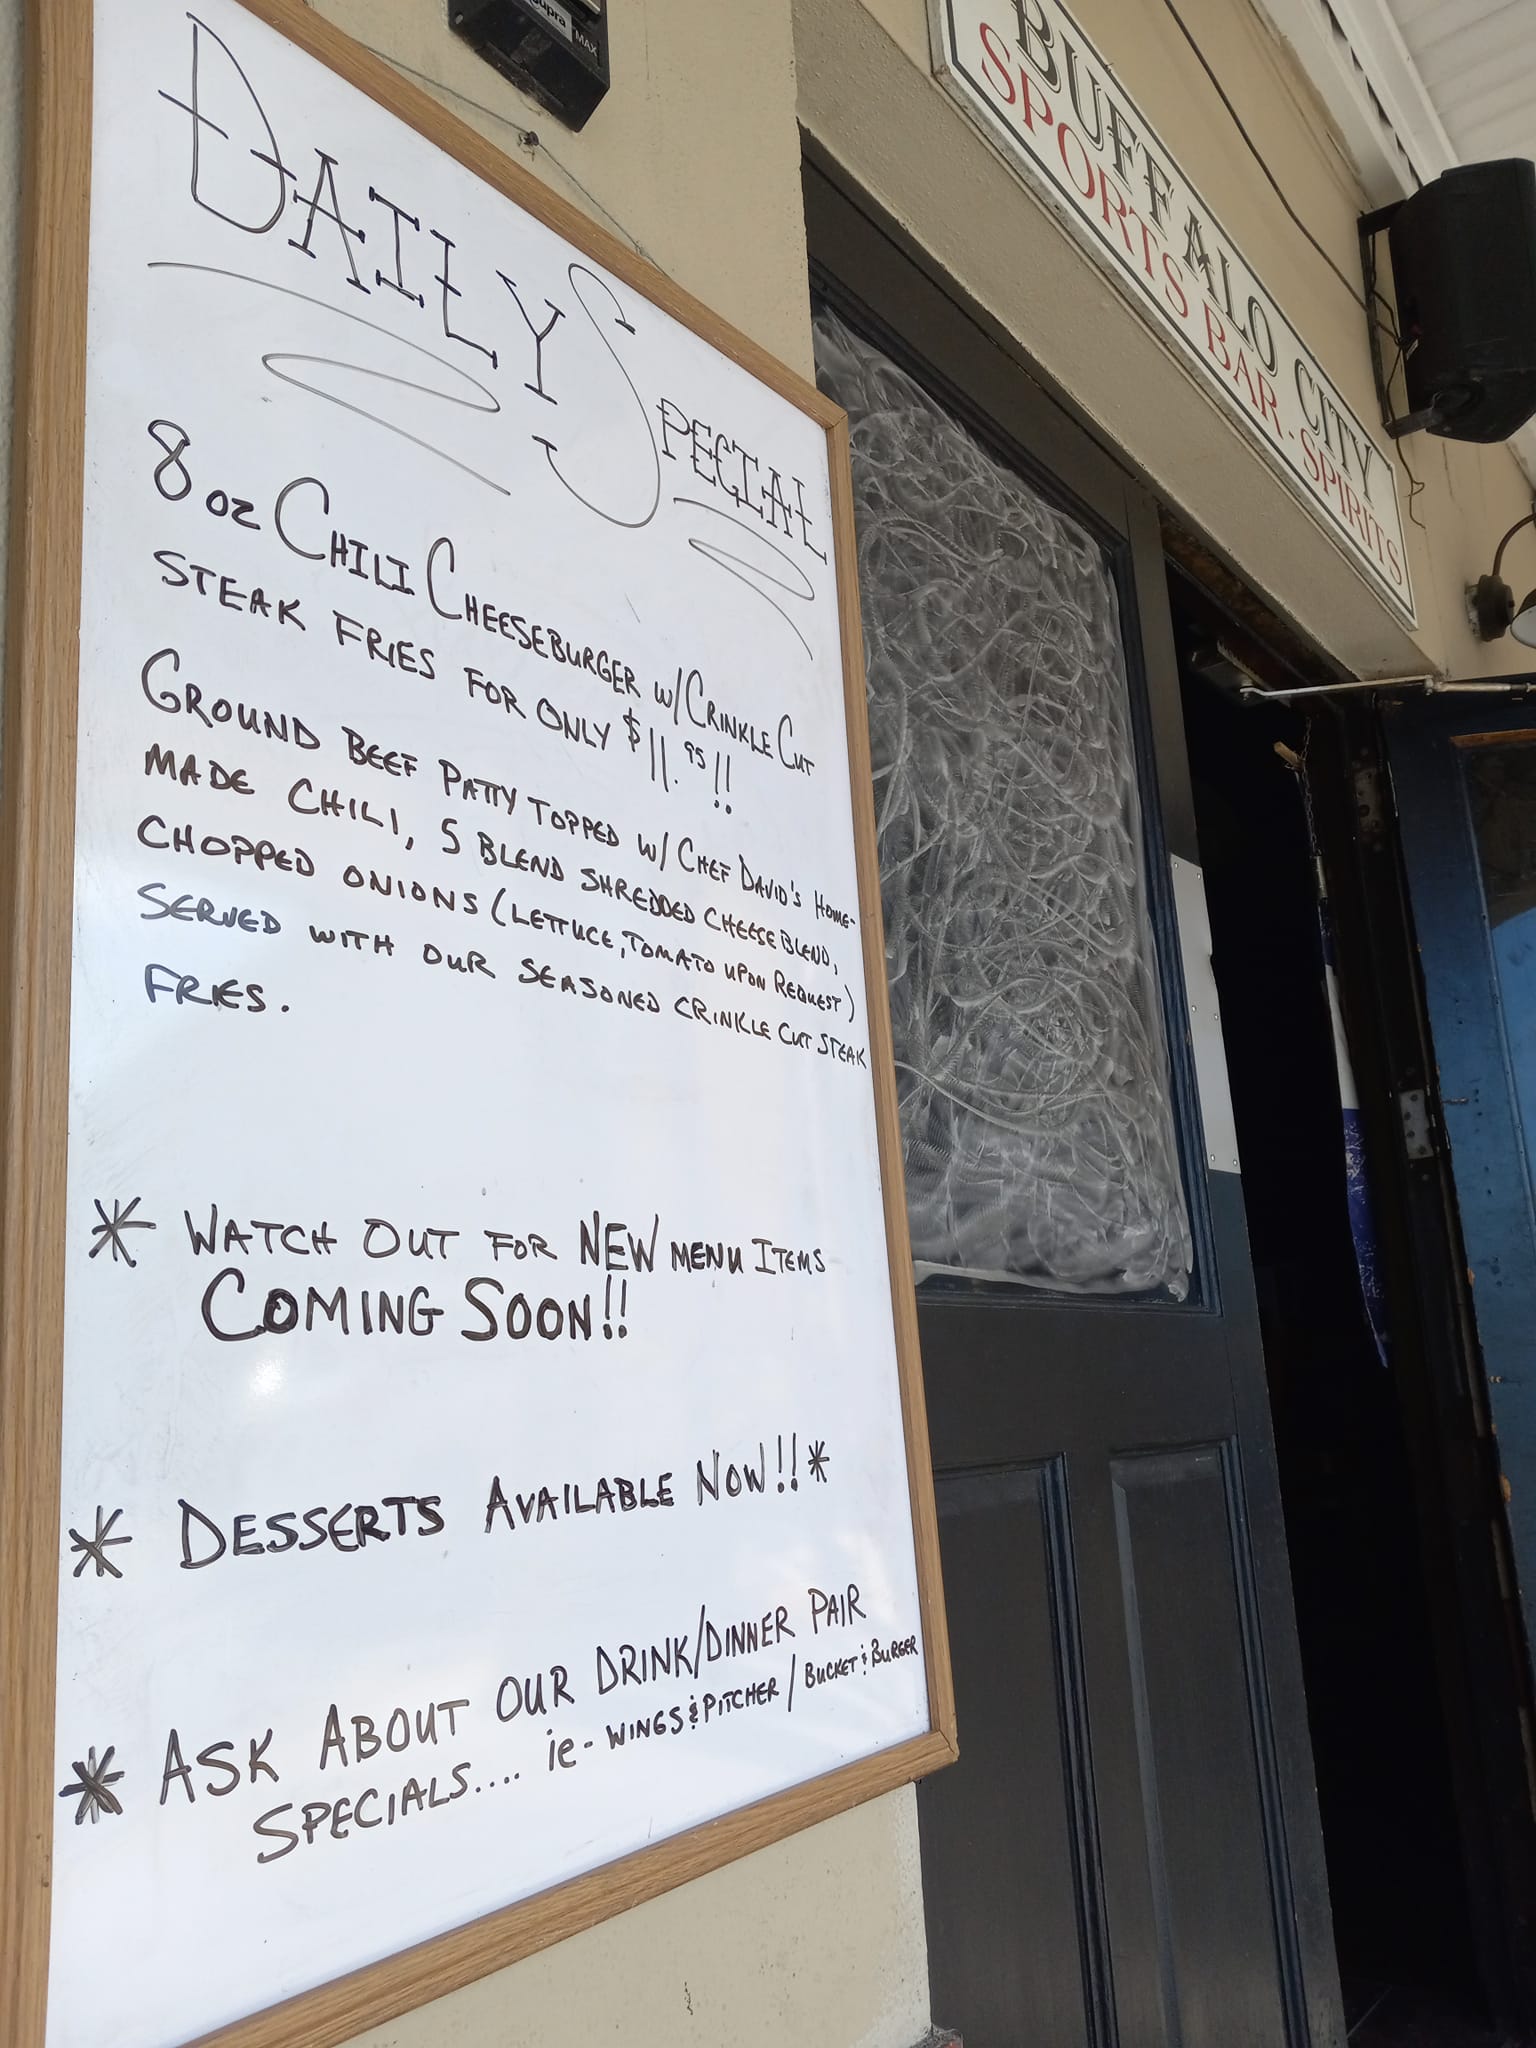 DAILY SPECIAL
8 oz CHILI CHEESEBURGER W/CRINKLE CUT
STEAK FRIES FOR ONLY $11.95!!
GROUND BEEF PATTY TOPPED W/ CHEF DAVID'S HOME-
MADE CHILI, 5 BLEND SHREDDED CHEESE BLEND,
CHOPPED ONIONS (LETTUCE, TOMATO UPON REQUEST)
SERVED WITH OUR SEASONED CRINKLE CUT STEAK
FRIES.
* WATCH OUT FOR NEW MENU ITEMS
COMING SOON!!
* DESSERTS AVAILABLE NOW!!*
* ASK ABOUT OUR DRINK/DINNER PAIR
SPECIALS.... ie - WINGS & PITCHER / BUCKET & BURGER
Supra
MAX
BUFFALO CITY
SPORTS BAR - SPIRITS